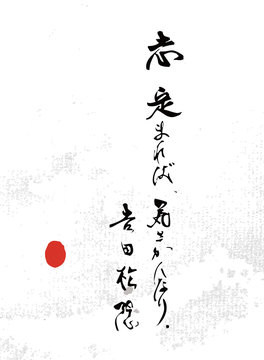 志定まれば、気さかんなり。
吉田松陰